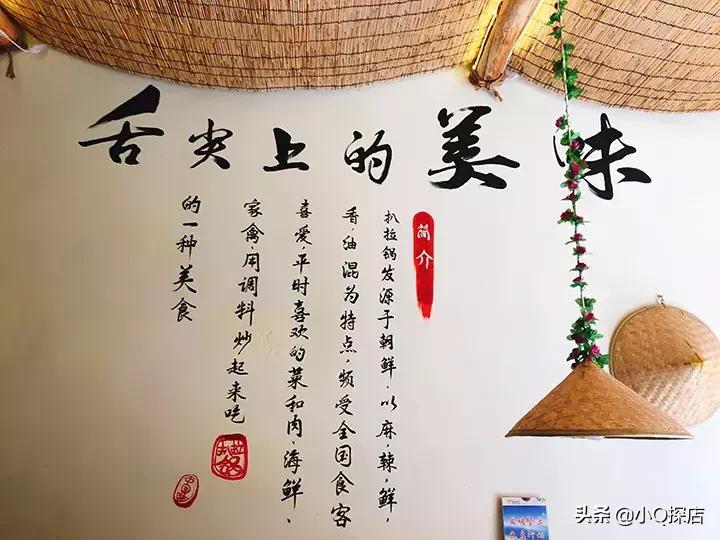 舌尖上的美味
简介
扒拉锅发源于朝鲜,以麻,辣,鲜,
香,油混为特点,频受全国食客
喜爱,平时喜欢的菜和肉,海鲜、
家禽,用调料炒起来吃
的一种美食
头条 @小Q探店